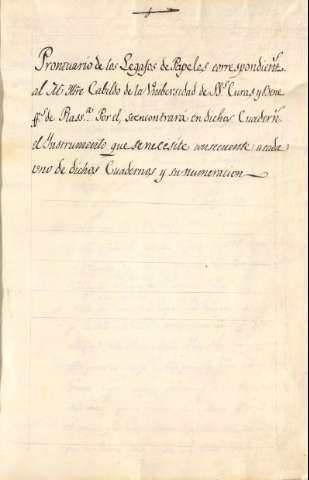 Prontuario de los Legajos de Papeles correspondien.s
al M. Iltre Cabildo de la Vniberсidad de S.s Curas, y Bene
ff.s de Plass.a Por el, se encontrará en dichos Cuadern.s
el Instrumento que se necesite consecuente a cada
uno de dichos Cuadernos y su numeracion